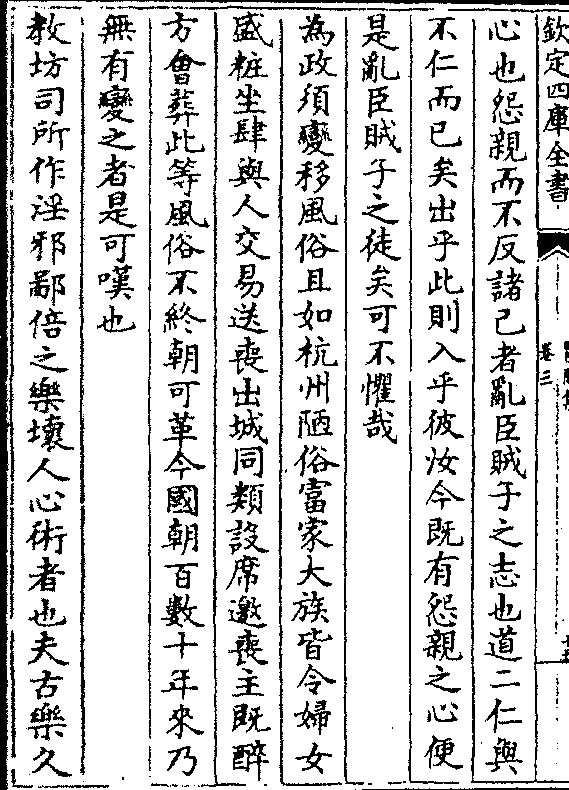 欽定四庫全書
卷三
心也怨親而不反諸己者亂臣賊子之志也道二仁與
不仁而已矣出乎此則入乎彼汝今既有怨親之心便
是亂臣賊子之徒矣可不懼哉
為政須變移風俗且如杭州陋俗富家大族皆令婦女
盛粧坐肆與人交易送喪出城同類設席邀喪主既醉
方會葬此等風俗不終朝可革今國朝百數十年來乃
無有變之者是可嘆也
教坊司所作淫邪鄙倍之樂壞人心術者也夫古樂久